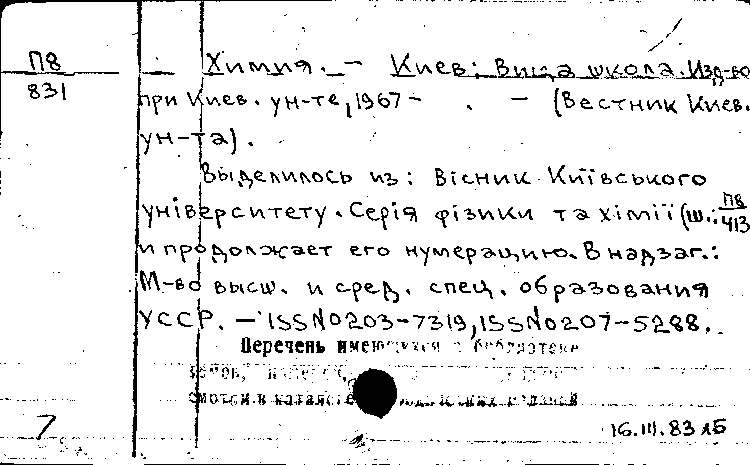 П8
831
Химия. — Киев: Вища школа. Изд-во
при Киев. ун-те, 1967 - . — (Вестник Киев.
ун-та).
Выделилось из: Вісник Київського
університету. Серія фізики та хімії (ш.: П8/413
и продолжает его нумерацию. В надзаг.:
М-во высш. и сред. спец. образования
УССР. — ISSN0203-7319, ISSN0207-5288.
Перечень имеющихся в библиотеке
смотри в каталоге
7
16.III.83 лб